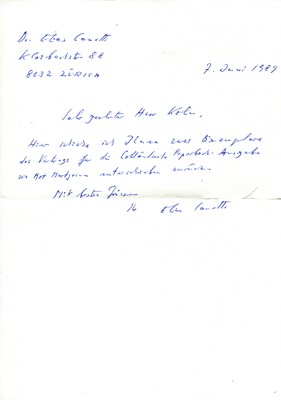 Dr. Elias Canetti
Klosbachstr. 88
8032 ZÜRICH
7. Juni 1989
Sehr geehrter Herr Köhn,
Hier schicke ich Ihnen zwei Exemplare
des Vertrags für die Paperback-Ausgabe
unterschrieben zurück.
Mit besten Grüssen
Ihr Elias Canetti